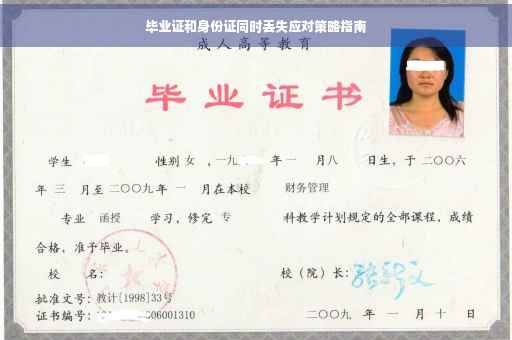 毕业证和身份证同时丢失应对策略指南
成人高等教育
毕业证书
学生 性别 女 ,一九 年 一 月八 日生，于 二〇〇六
年 三 月至 二〇〇九 年 一 月在本校 财务管理
专业 函授 学习，修完 专 科教学计划规定的全部课程，成绩
合格，准予毕业。
校 名： 校（院）长：
批准文号：教计[1998]33号
证书编号： 06001310 二〇〇九 年 一 月 十 日